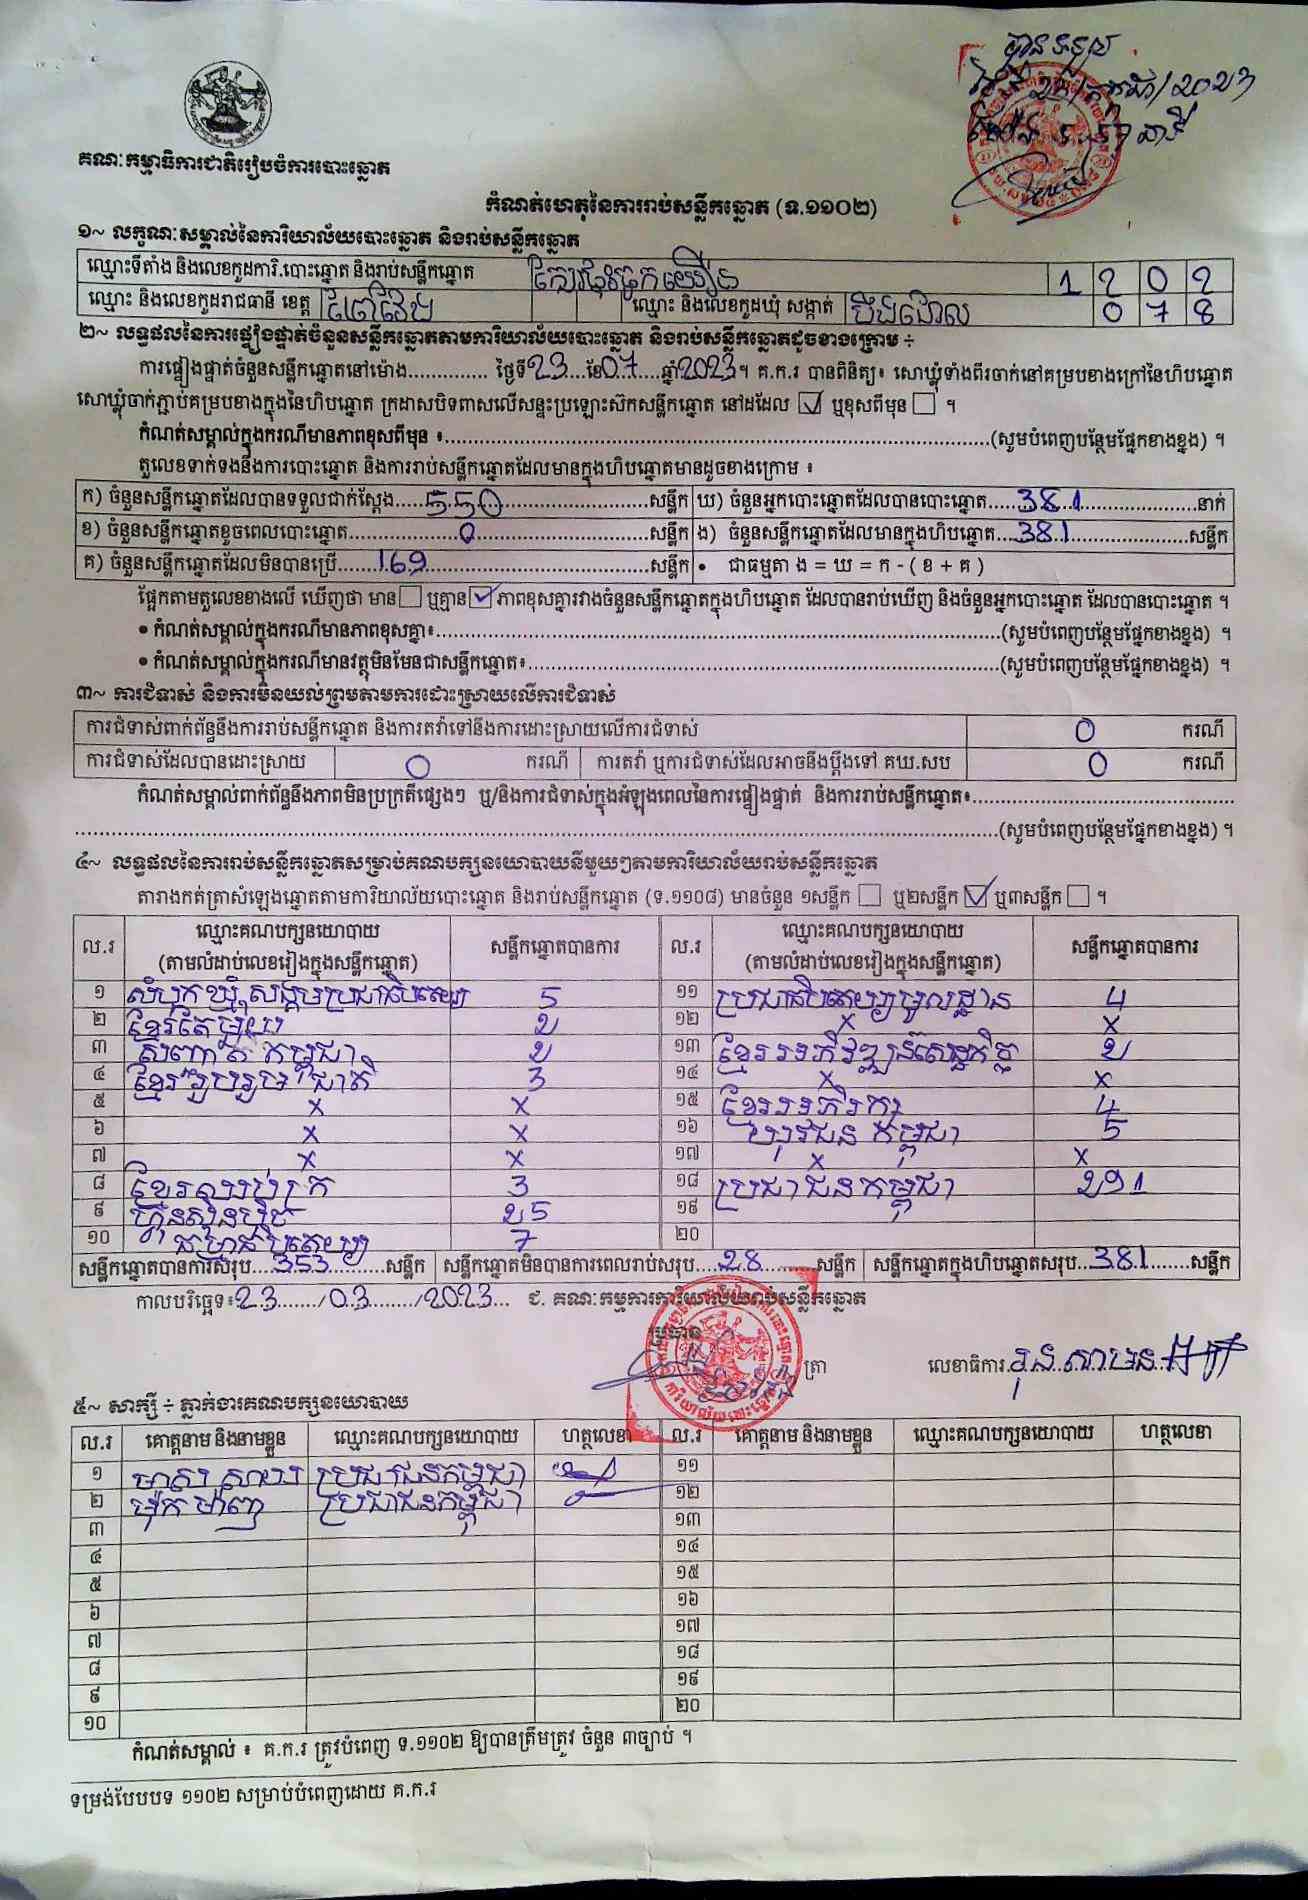 បានទទួល
គណៈកម្មាធិការជាតិរៀបចំការបោះឆ្នោត
កំណត់ហេតុនៃការរាប់សន្លឹកឆ្នោត (ទ.១១០២)
១~ លក្ខណៈសម្គាល់នៃការិយាល័យបោះឆ្នោត និងរាប់សន្លឹកឆ្នោត
ឈ្មោះទីតាំង និងលេខកូដការិ.បោះឆ្នោត និងរាប់សន្លឹកឆ្នោត 1 2 0 2
ឈ្មោះ និងលេខកូដរាជធានី ខេត្ត ព្រៃវែង ឈ្មោះ និងលេខកូដឃុំ សង្កាត់ បឹងដោល 0 7 8
២~ លទ្ធផលនៃការផ្ទៀងផ្ទាត់ចំនួនសន្លឹកឆ្នោតតាមការិយាល័យបោះឆ្នោត និងរាប់សន្លឹកឆ្នោតដូចខាងក្រោម ÷
ការផ្ទៀងផ្ទាត់ចំនួនសន្លឹកឆ្នោតនៅម៉ោង.............. ថ្ងៃទី23...ខែ07......ឆ្នាំ2023។ គ.ក.រ បានពិនិត្យ៖ សោឃ្លុំទាំងពីរចាក់នៅគម្របខាងក្រៅនៃហិបឆ្នោត
សោឃ្លុំចាក់ភ្ជាប់គម្របខាងក្នុងនៃហិបឆ្នោត ក្រដាសបិទពាសលើសន្ទះប្រឡោះស៊កសន្លឹកឆ្នោត នៅដដែល ☑ ឬខុសពីមុន ☐ ។
កំណត់សម្គាល់ក្នុងករណីមានភាពខុសពីមុន ៖..........(សូមបំពេញបន្ថែមផ្នែកខាងខ្នង) ។
តួលេខទាក់ទងនឹងការបោះឆ្នោត និងការរាប់សន្លឹកឆ្នោតដែលមានក្នុងហិបឆ្នោតមានដូចខាងក្រោម ៖
ក) ចំនួនសន្លឹកឆ្នោតដែលបានទទួលជាក់ស្តែង....550..........សន្លឹក ឃ) ចំនួនអ្នកបោះឆ្នោតដែលបានបោះឆ្នោត.....381..........នាក់
ខ) ចំនួនសន្លឹកឆ្នោតខូចពេលបោះឆ្នោត..........0..........សន្លឹក ង) ចំនួនសន្លឹកឆ្នោតដែលមានក្នុងហិបឆ្នោត....381..........សន្លឹក
គ) ចំនួនសន្លឹកឆ្នោតដែលមិនបានប្រើ......169..........សន្លឹក • ជាធម្មតា ង = ឃ = ក - ( ខ + គ )
ផ្អែកតាមតួលេខខាងលើ ឃើញថា មាន ☐ ឬគ្មាន ☑ ភាពខុសគ្នារវាងចំនួនសន្លឹកឆ្នោតក្នុងហិបឆ្នោត ដែលបានរាប់ឃើញ និងចំនួនអ្នកបោះឆ្នោត ដែលបានបោះឆ្នោត ។
• កំណត់សម្គាល់ក្នុងករណីមានភាពខុសគ្នា៖..........(សូមបំពេញបន្ថែមផ្នែកខាងខ្នង) ។
• កំណត់សម្គាល់ក្នុងករណីមានវត្ថុមិនមែនជាសន្លឹកឆ្នោត៖..........(សូមបំពេញបន្ថែមផ្នែកខាងខ្នង) ។
៣~ ការជំទាស់ និងការមិនយល់ព្រមតាមការដោះស្រាយលើការជំទាស់
ការជំទាស់ពាក់ព័ន្ធនឹងការរាប់សន្លឹកឆ្នោត និងការតវ៉ាទៅនឹងការដោះស្រាយលើការជំទាស់ 0 ករណី
ការជំទាស់ដែលបានដោះស្រាយ 0 ករណី ការតវ៉ា ឬការជំទាស់ដែលអាចនឹងប្តឹងទៅ គឃ.សប 0 ករណី
កំណត់សម្គាល់ពាក់ព័ន្ធនឹងភាពមិនប្រក្រតីផ្សេងៗ ឬ/និងការជំទាស់ក្នុងអំឡុងពេលនៃការផ្ទៀងផ្ទាត់ និងការរាប់សន្លឹកឆ្នោត៖..........
..........(សូមបំពេញបន្ថែមផ្នែកខាងខ្នង) ។
៤~ លទ្ធផលនៃការរាប់សន្លឹកឆ្នោតសម្រាប់គណបក្សនយោបាយនីមួយៗតាមការិយាល័យរាប់សន្លឹកឆ្នោត
តារាងកត់ត្រាសំឡេងឆ្នោតតាមការិយាល័យបោះឆ្នោត និងរាប់សន្លឹកឆ្នោត (ទ.១១០៨) មានចំនួន ១សន្លឹក ☐ ឬ២សន្លឹក ☑ ឬ៣សន្លឹក ☐ ។
ល.រ ឈ្មោះគណបក្សនយោបាយ (តាមលំដាប់លេខរៀងក្នុងសន្លឹកឆ្នោត) សន្លឹកឆ្នោតបានការ ល.រ ឈ្មោះគណបក្សនយោបាយ (តាមលំដាប់លេខរៀងក្នុងសន្លឹកឆ្នោត) សន្លឹកឆ្នោតបានការ
១ សំបុកឃ្មុំសង្គមប្រជាធិបតេយ្យ 5 ១១ ប្រជាធិបតេយ្យមូលដ្ឋាន 4
២ ខ្មែរតែមួយ 2 ១២ x x
៣ សញ្ជាតិកម្ពុជា 2 ១៣ ខ្មែរអភិវឌ្ឍន៍សេដ្ឋកិច្ច 2
៤ ខ្មែររួបរួមជាតិ 3 ១៤ x x
៥ x x ១៥ ខ្មែរអភិរក្ស 4
៦ x x ១៦ យុវជនកម្ពុជា 5
៧ x x ១៧ x x
៨ ខ្មែរឈប់ក្រ 3 ១៨ ប្រជាជនកម្ពុជា 291
៩ ហ្វ៊ុនស៊ិនប៉ិច 25 ១៩
១០ ធម្មាធិបតេយ្យ 7 ២០
សន្លឹកឆ្នោតបានការសរុប....353..........សន្លឹក សន្លឹកឆ្នោតមិនបានការពេលរាប់សរុប....28..........សន្លឹក សន្លឹកឆ្នោតក្នុងហិបឆ្នោតសរុប...381.......សន្លឹក
កាលបរិច្ឆេទ៖23......./03......../2023... ជ. គណៈកម្មការការិយាល័យរាប់សន្លឹកឆ្នោត
ប្រធាន
ត្រា
លេខាធិការ
៥~ សាក្សី ÷ ភ្នាក់ងារគណបក្សនយោបាយ
ល.រ គោត្តនាម និងនាមខ្លួន ឈ្មោះគណបក្សនយោបាយ ហត្ថលេខា ល.រ គោត្តនាម និងនាមខ្លួន ឈ្មោះគណបក្សនយោបាយ ហត្ថលេខា
១ មាស សាយ ប្រជាជនកម្ពុជា ១១
២ ម៉ុក ម៉ាញ ប្រជាជនកម្ពុជា ១២
៣ ១៣
៤ ១៤
៥ ១៥
៦ ១៦
៧ ១៧
៨ ១៨
៩ ១៩
១០ ២០
កំណត់សម្គាល់ ៖ គ.ក.រ ត្រូវបំពេញ ទ.១១០២ ឱ្យបានត្រឹមត្រូវ ចំនួន ៣ច្បាប់ ។
ទម្រង់បែបបទ ១១០២ សម្រាប់បំពេញដោយ គ.ក.រ